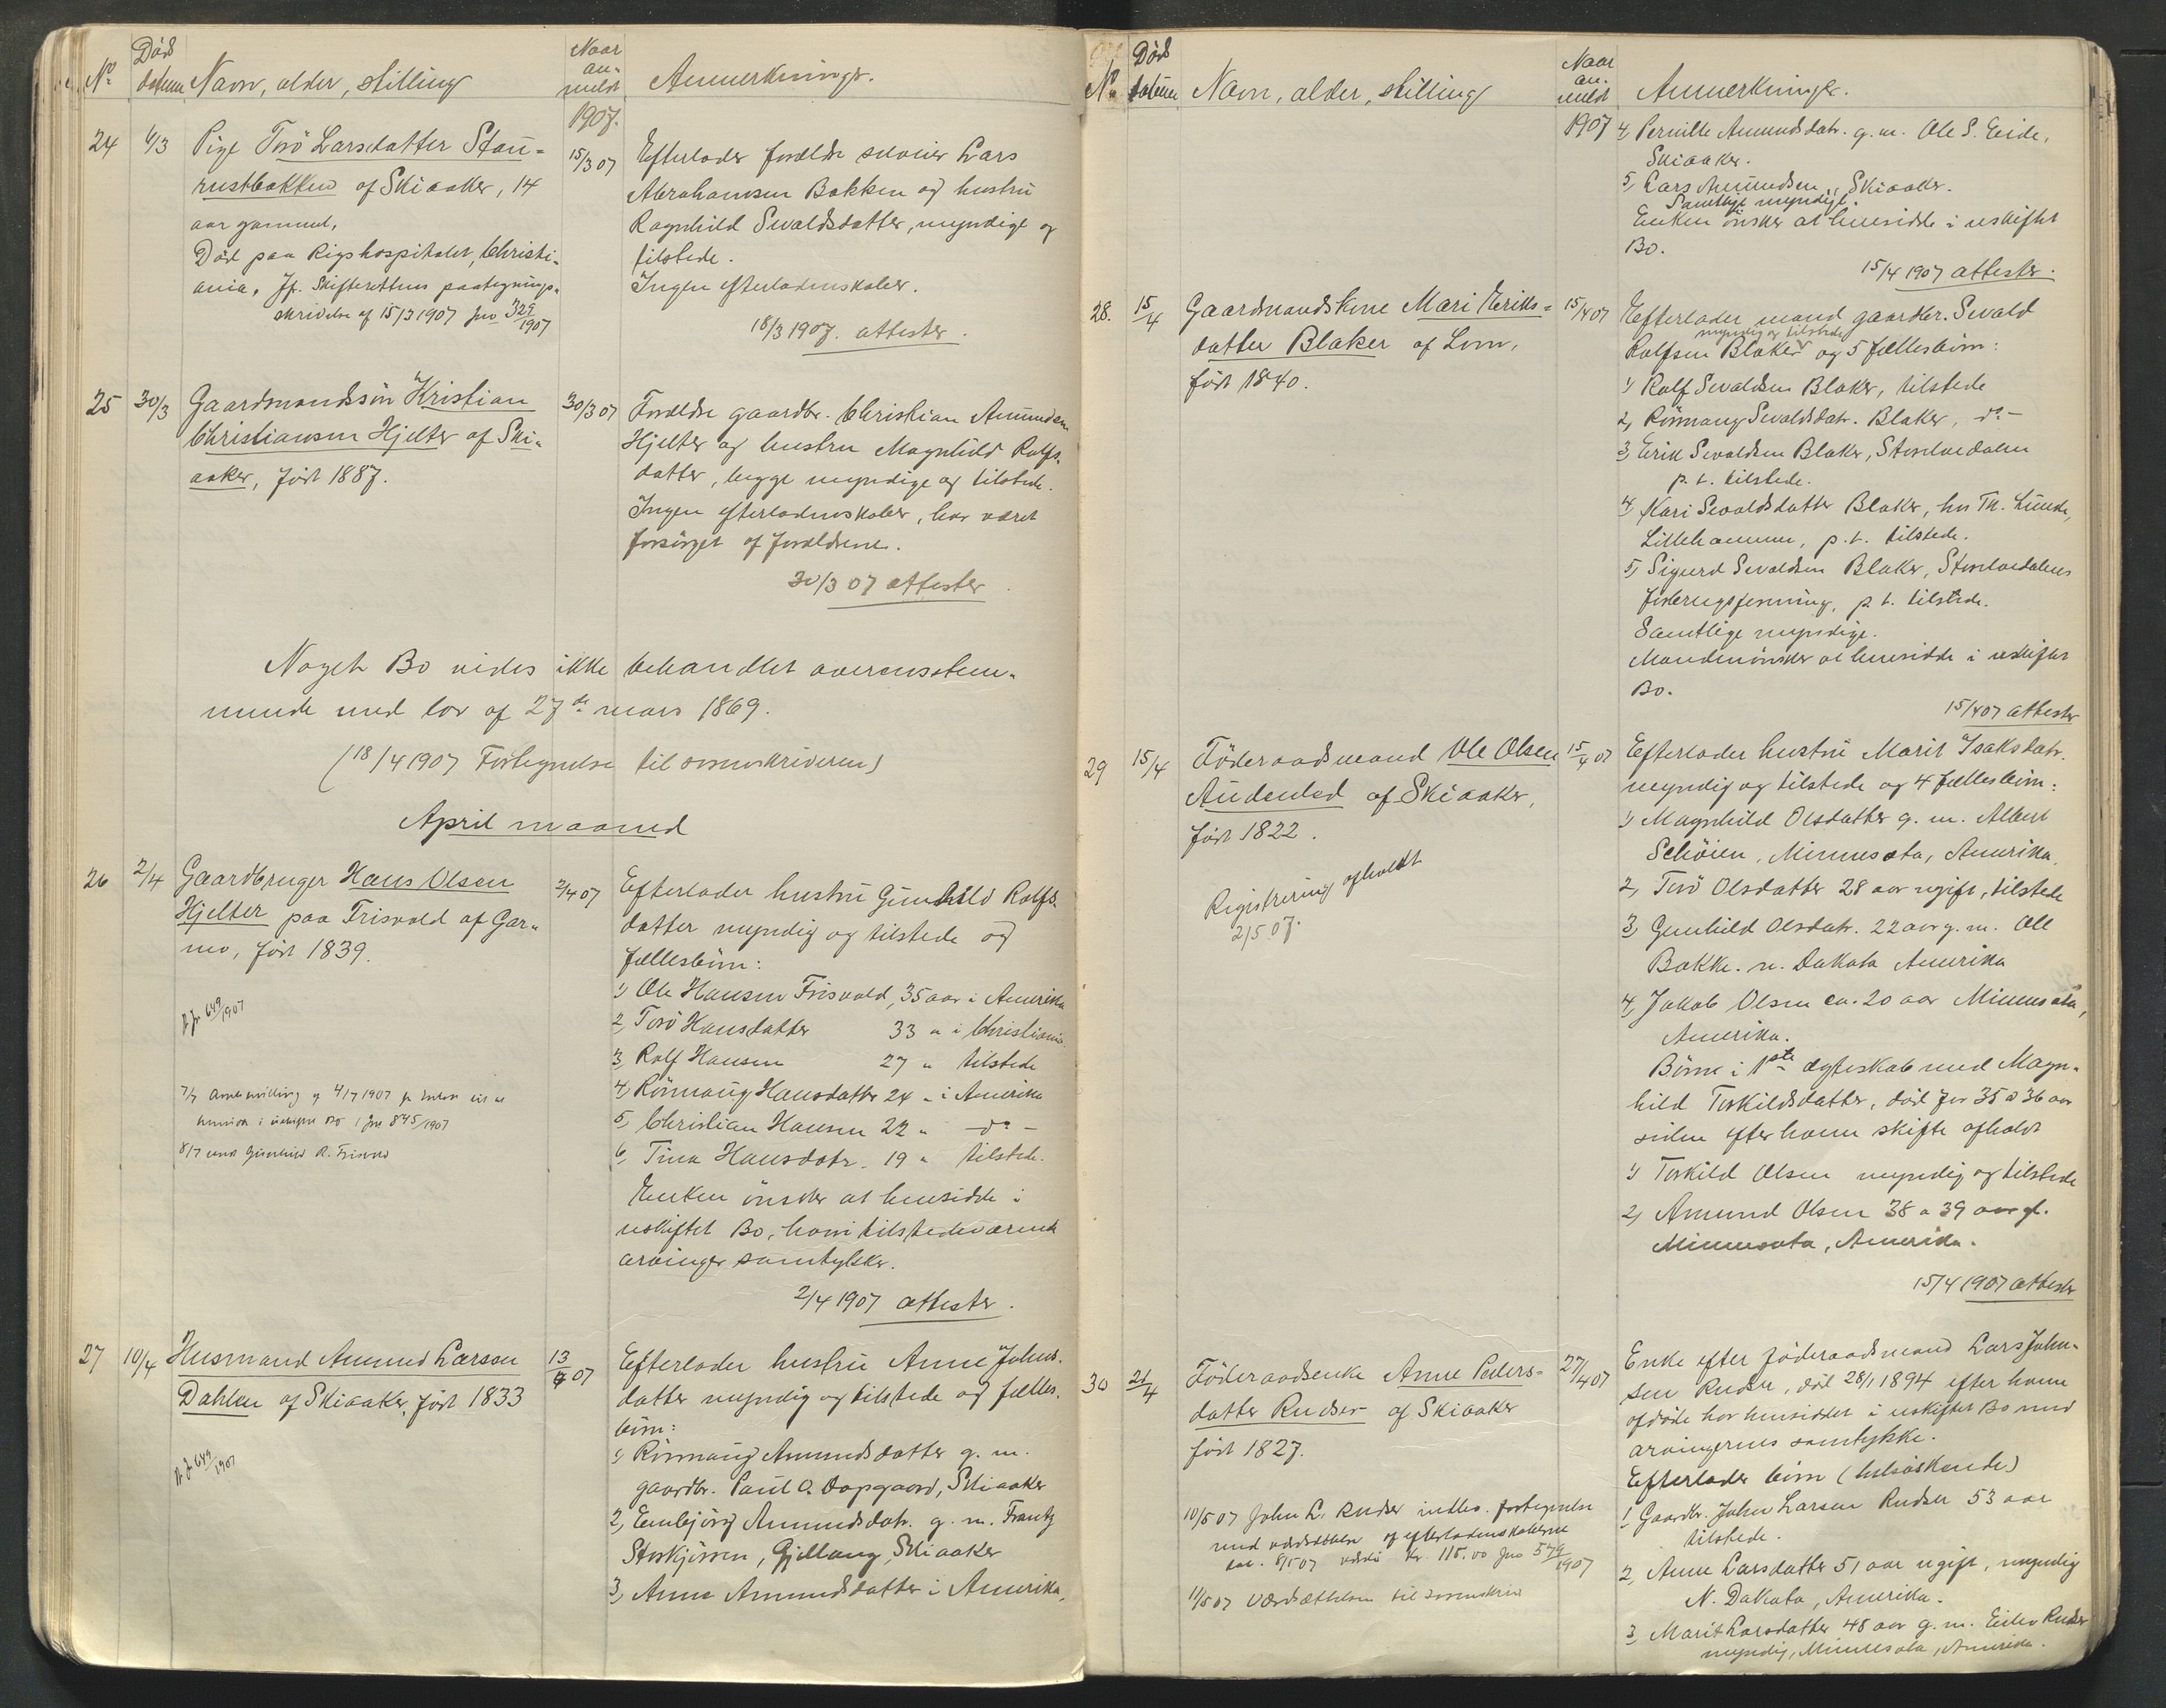 No Død datum Navn, alder, stilling Naar an- meldt Anmerkninger.
1907.
24 6/3 Pige Torö Larsdatter Stau-
rustbakken af Skiaaker, 14
aar gammel,
Död paa Rigshospitalet, Christi-
ania. Jfr. Skifterettens paategnings-
skrivelse af 15/3 1907 Jno 329/1907
15/3 07 Efterlader forældre selveier Lars
Abrahamsen Bakken og hustru
Ragnhild Sevaldsdatter, myndige og
tilstede.
Ingen efterladenskaber.
18/3 1907. attester.
25 30/3 Gaardmandssön Kristian
Christiansen Hjelter af Ski-
aaker, född 1887.
30/3 07 Forældre gaardbr. Christian Amundsen
Hjelter og hustru Magnhild Rolfs-
datter, begge myndige og tilstede.
Ingen efterladenskaber, har været
forsörget af forældrene.
30/3 07 attester
Noget Bo vides ikke behandlet overensstem-
mende med lov af 27de mars 1869.
(18/4 1907 Fortegnelse til sorenskriveren)
April maaned
26 2/4 Gaardbruger Hans Olsen
Hjelter paa Frisvold af Gar-
mo, född 1839.
649/1907
4/7 1907
845/1907
8/7 Gunhild R. Frisvold
2/4 07 Efterlader hustru Gunhild Rolfs-
datter myndig og tilstede og
fællesbörn:
1) Ole Hansen Frisvold, 35 aar i Amerika
2, Torö Hansdatter 33 " i Christiania.
3, Rolf Hansen 27 " tilstede
4, Rönnaug Hansdatter 24 " i Amerika
5, Christian Hansen 22 " do -
6, Tina Hansdatr. 19 " tilstede.
Enken önsker at hensidde i
uskiftet Bo, hvori tilstedeværende
arvinger samtykker.
2/4 1907 attester.
27 10/4 Husmand Amund Larsen
Dahlen af Skiaaker, född 1833
649/1907
13/4 07 Efterlader hustru Anne Johns-
datter myndig og tilstede og fælles-
börn:
1) Rönnaug Amundsdatter g. m.
gaardbr. Paul O. Dopgaard, Skiaaker
2, Embjörg Amundsdatr. g. m. Frantz
Storkjörren, Gjellaug, Skiaaker
3, Anne Amundsdatter i Amerika,
No Død datum Navn, alder, stilling Naar an- meldt Anmerkninger.
1907 4, Pernille Amundsdatr. g. m. Ole S. Eide,
Skiaaker.
5, Lars Amundsen, Skiaaker.
Samtlige myndige.
Enken önsker at hensidde i uskiftet
Bo.
15/4 1907 attester.
28. 15/4 Gaardmandskone Mari Eriks-
datter Blaker af Lom,
född 1840.
15/4 07 Efterlader mand gaardbr. Sevald
myndig og tilstede
Rolfsen Blaker og 5 fællesbörn:
1) Rolf Sevaldsen Blaker, tilstede
2, Rönnaug Sevaldsdatr. Blaker, do -
3, Erik Sevaldsen Blaker, Storelvedalen
p. t. tilstede.
4, Kari Sevaldsdatter Blaker, hos Th. Lunde,
Lillehammer, p. t. tilstede.
5, Sigurd Sevaldsen Blaker, Storelvedalens
p. t. tilstede.
Samtlige myndige.
Manden önsker at hensidde i uskiftet
Bo.
15/4 07 attester
29 15/4 Föderaadsmand Ole Olsen
Audenled af Skiaaker,
född 1822.
Registrering afholdt
2/5 07.
15/4 07 Efterlader hustru Marit Isaksdatr.
myndig og tilstede og 4 fællesbörn:
1) Magnhild Olsdatter g. m. Albert
Schöien, Minnesota, Amerika.
2, Torö Olsdatter 28 aar ugift, tilstede
3, Gunhild Olsdatr. 22 aar g. m. Ole
Bakke. N. Dakota Amerika
4, Jakob Olsen ca. 20 aar Minnesota,
Amerika.
Börn i 1ste ægteskab med Magn-
hild Torkildsdatter, död for 35 à 36 aar
siden efter hvem skifte afholdt
1) Torkild Olsen myndig og tilstede
2) Amund Olsen 38 a 39 aar gl.
Minnesota, Amerika.
15/4 1907 attester
30 21/4 Föderaadsenke Anne Peders-
datter Rudser af Skiaaker
född 1827.
10/5 07 John L. Rudser indlev. fortegnelse
med værdsættelse af efterladenskaberne
dat. 8/5 07 værdi kr. 115.00 Jno 579/1907
11/5 07 værdsættelsen til sorenskriv
27/4 07 Enke efter föderaadsmand Lars John-
sen Rudser, död 28/1 1894 efter hvem
afdöde har hensiddet i uskiftet Bo med
arvingernes samtykke.
Efterlader börn (helsöskende)
1, Gaardbr. John Larsen Rudser 53 aar
tilstede.
2, Anne Larsdatter 51 aar ugift, myndig
N. Dakota, Amerika.
3, Marit Larsdatter 48 aar g. m. Eilev Rudser
myndig, Minnesota, Amerika.